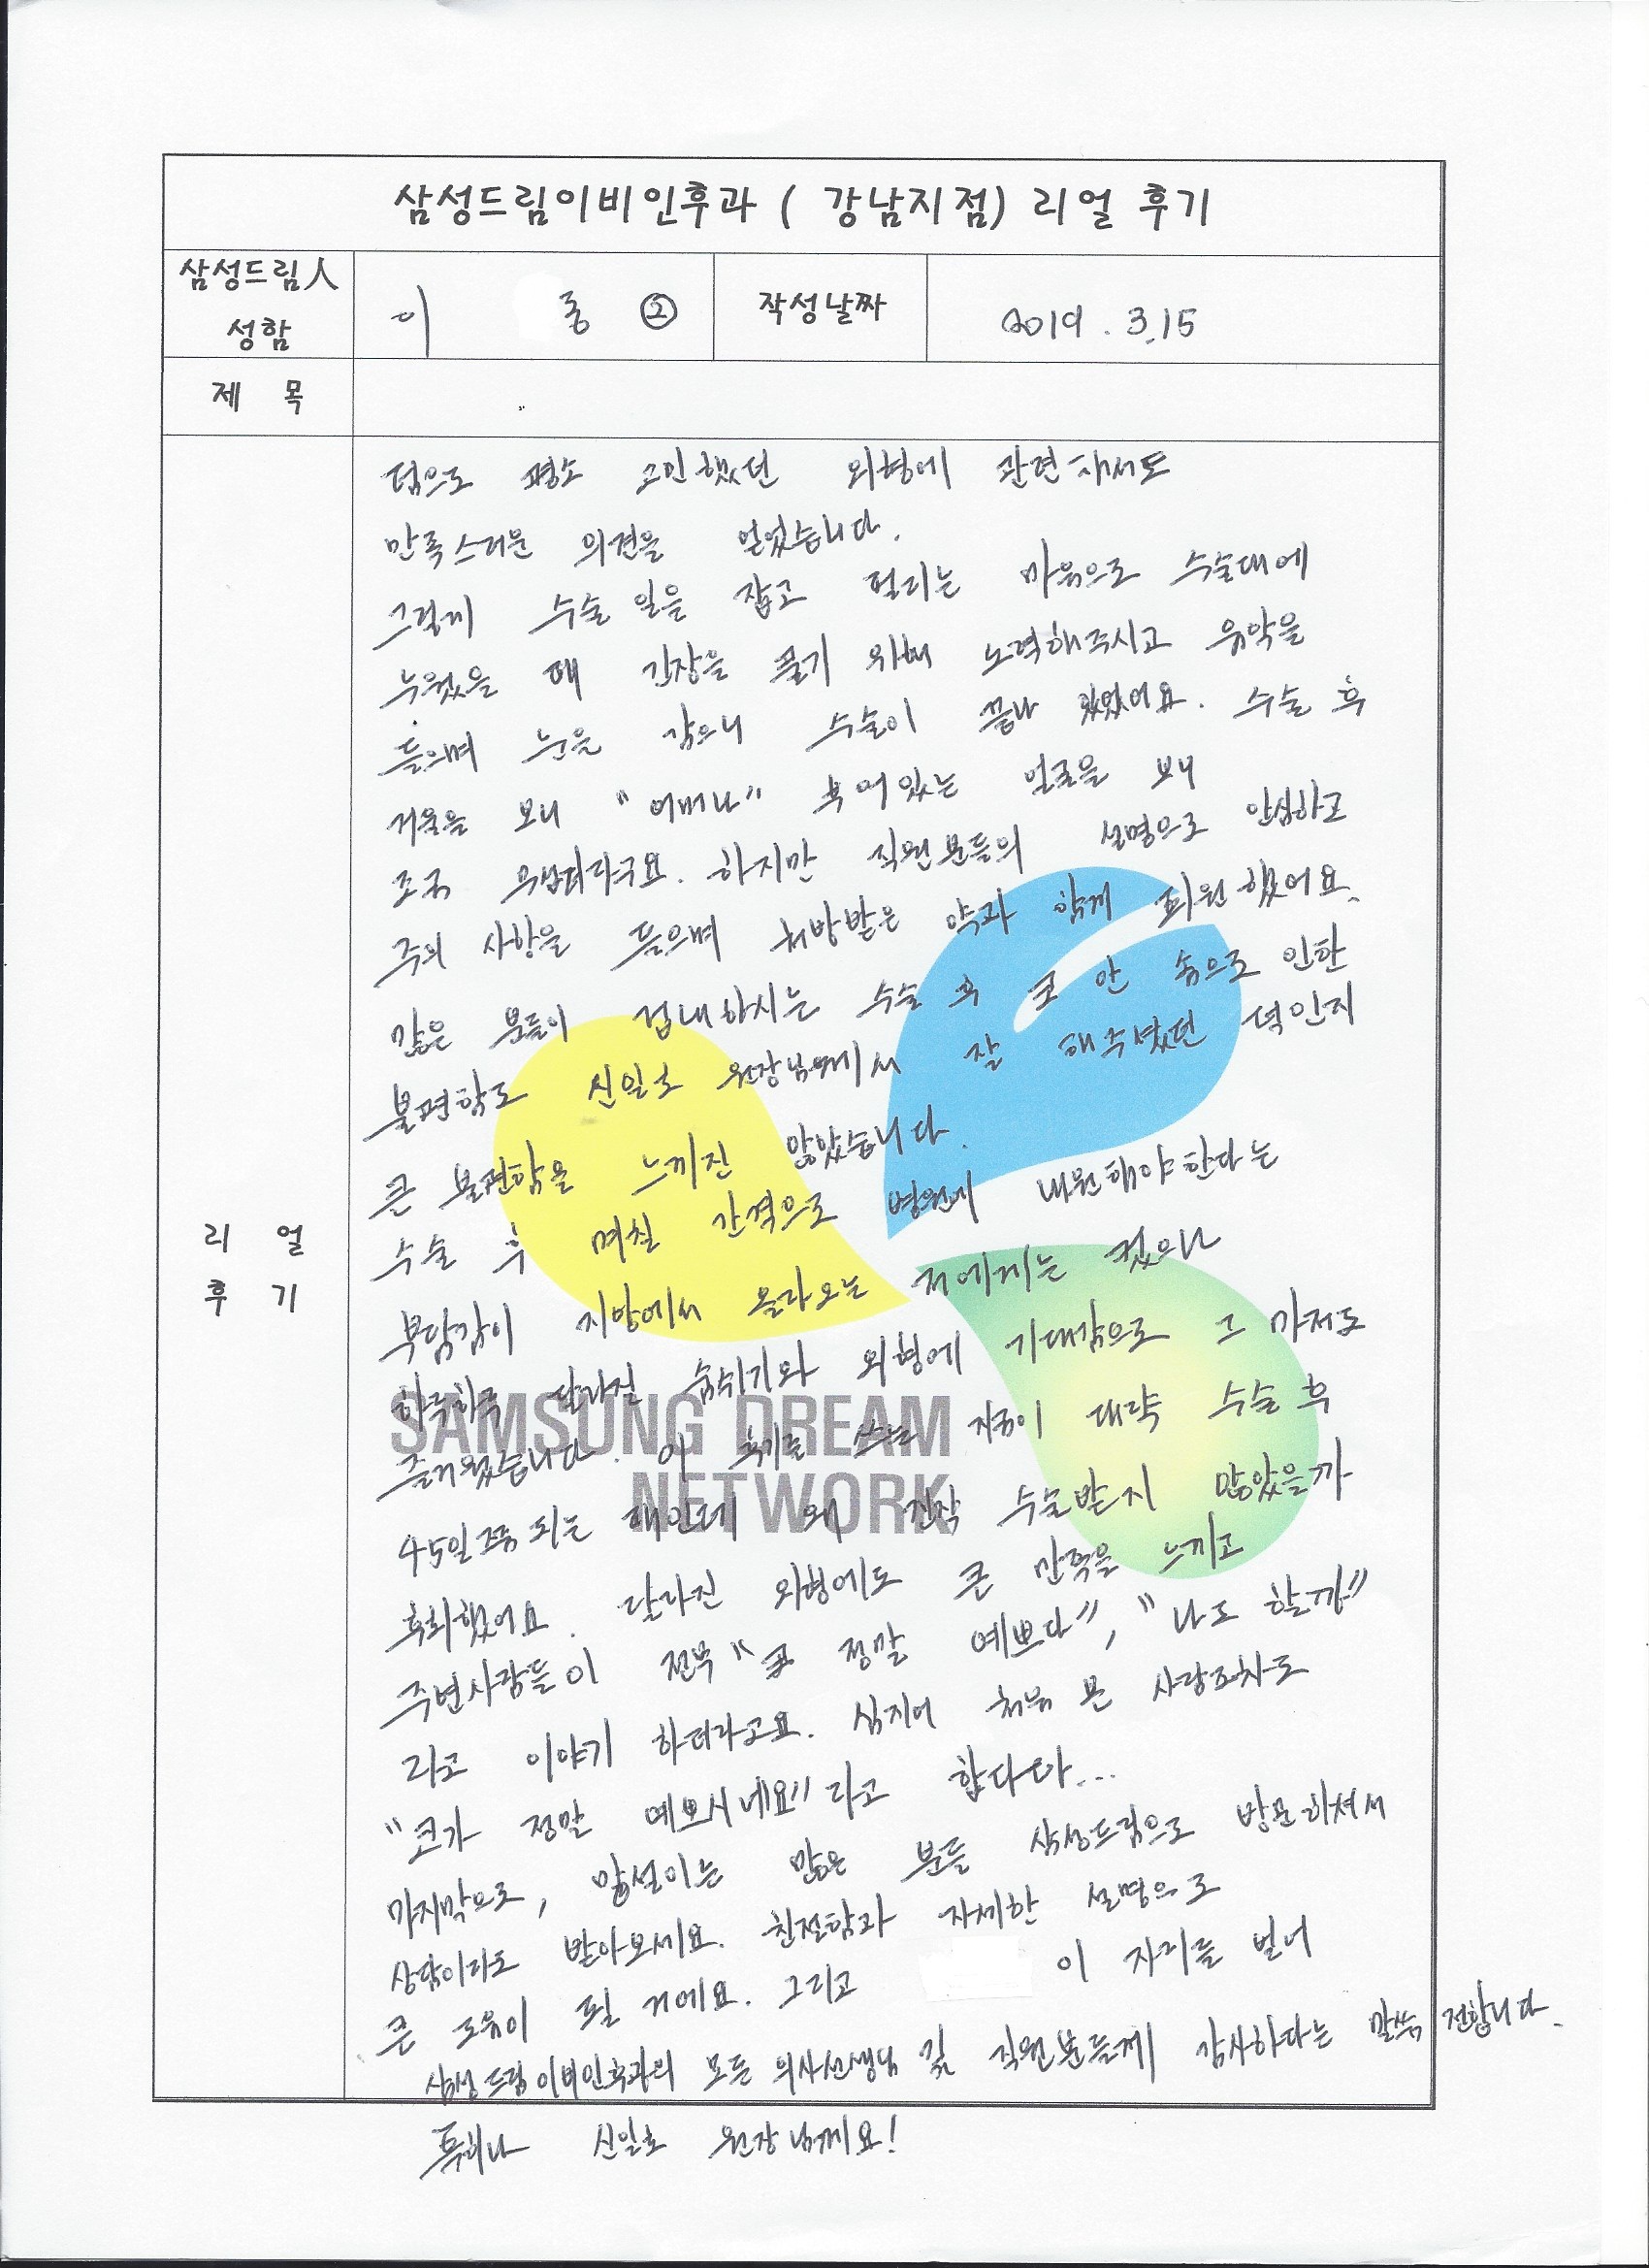 삼성드림이비인후과 ( 강남지점) 리얼 후기
삼성드림人
성함
이 종 ②
작성날짜
2019 . 3.15
제 목
리 얼
후 기
덤으로 평소 고민했던 외형에 관련해서도
만족스러운 의견을 얻었습니다.
그렇게 수술 일을 잡고 떨리는 마음으로 수술대에
누웠을 때 긴장을 풀기 위해 노력해주시고 음악을
들으며 눈을 감으니 수술이 끝나 있었어요. 수술 후
거울을 보니 "어머나" 부어있는 얼굴을 보니
조금 무섭더라구요. 하지만 직원분들의 설명으로 안심하고
주의 사항을 들으며 처방받은 약과 함께 퇴원했어요.
많은 분들이 겁내하시는 수술 후 코 안 솜으로 인한
불편함도 신일호 원장님께서 잘 해주셨던 덕인지
큰 불편함을 느끼진 않았습니다.
수술 후 며칠 간격으로 병원에 내원해야한다는
부담감이 지방에서 올라오는 저에게는 컸으나
하루하루 달라진 숨쉬기와 외형에 기대감으로 그 마저도
즐거웠습니다. 이 후기를 쓰는 지금이 대략 수술 후
45일쯤 되는 해인데 왜 진작 수술받지 않았을까
후회했어요. 달라진 외형에도 큰 만족을 느끼고
주변사람들이 전부 "코 정말 예쁘다", "나도 할까"
라고 이야기 하더라고요. 심지어 처음 본 사람조차도
"코가 정말 예쁘시네요"라고 합니다...
마지막으로, 망설이는 많은 분들 삼성드림으로 방문하셔서
상담이라도 받아보세요. 친절함과 자세한 설명으로
큰 도움이 될 거에요. 그리고 이 자리를 빌어
삼성드림이비인후과의 모든 의사선생님 및 직원분들께 감사하다는 말씀 전합니다.
특히나 신일호 원장님께요!
SAMSUNG DREAM
NETWORK